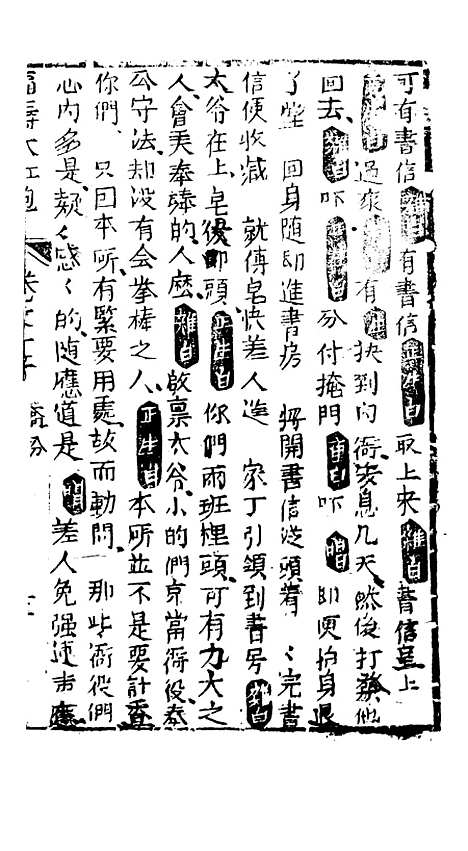 可有書信雜白有書信正生白取上來雜白書信呈上
過來有 扶到內衙安息几天然後打發他
回去雜白吓 分付掩門 吓唱即便抽身退
了堂 回身随即進書房 將開書信從頭看〻完書
信便收藏 就傳皂快差人造 家丁引領到書房雜白
太爷在上皂後叩頭正生白你們兩班裡頭可有力大之
人會美奉棒的人庅雜白啟禀太爷小的們京當衙役奉
公守法却没有会拳棒之人正生白本所並不是要計委
你們只囙本所有緊要用處故而動問 那些衙役們
心内多是疑〻惑〻的随應道是唱差人免强連声應
福壽大紅袍 卷之